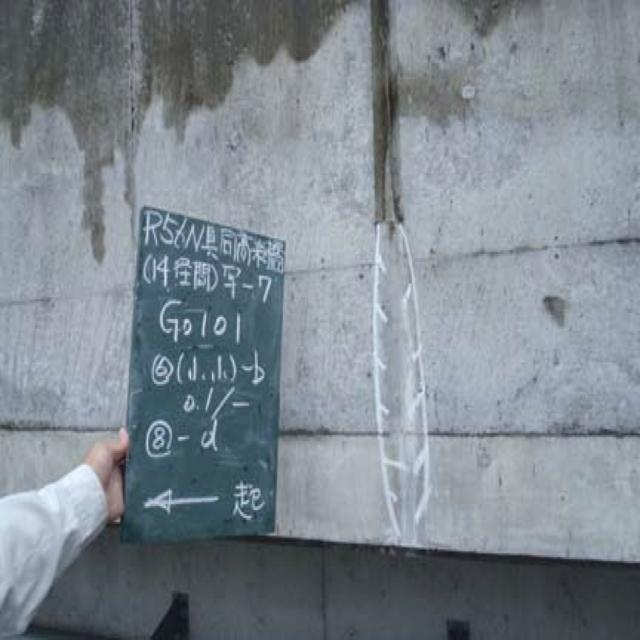 R56N具同高架橋
(14径間)写-7
G0101
⑥(,1,.,1,)-b
0.1/-
⑧-d
← 起